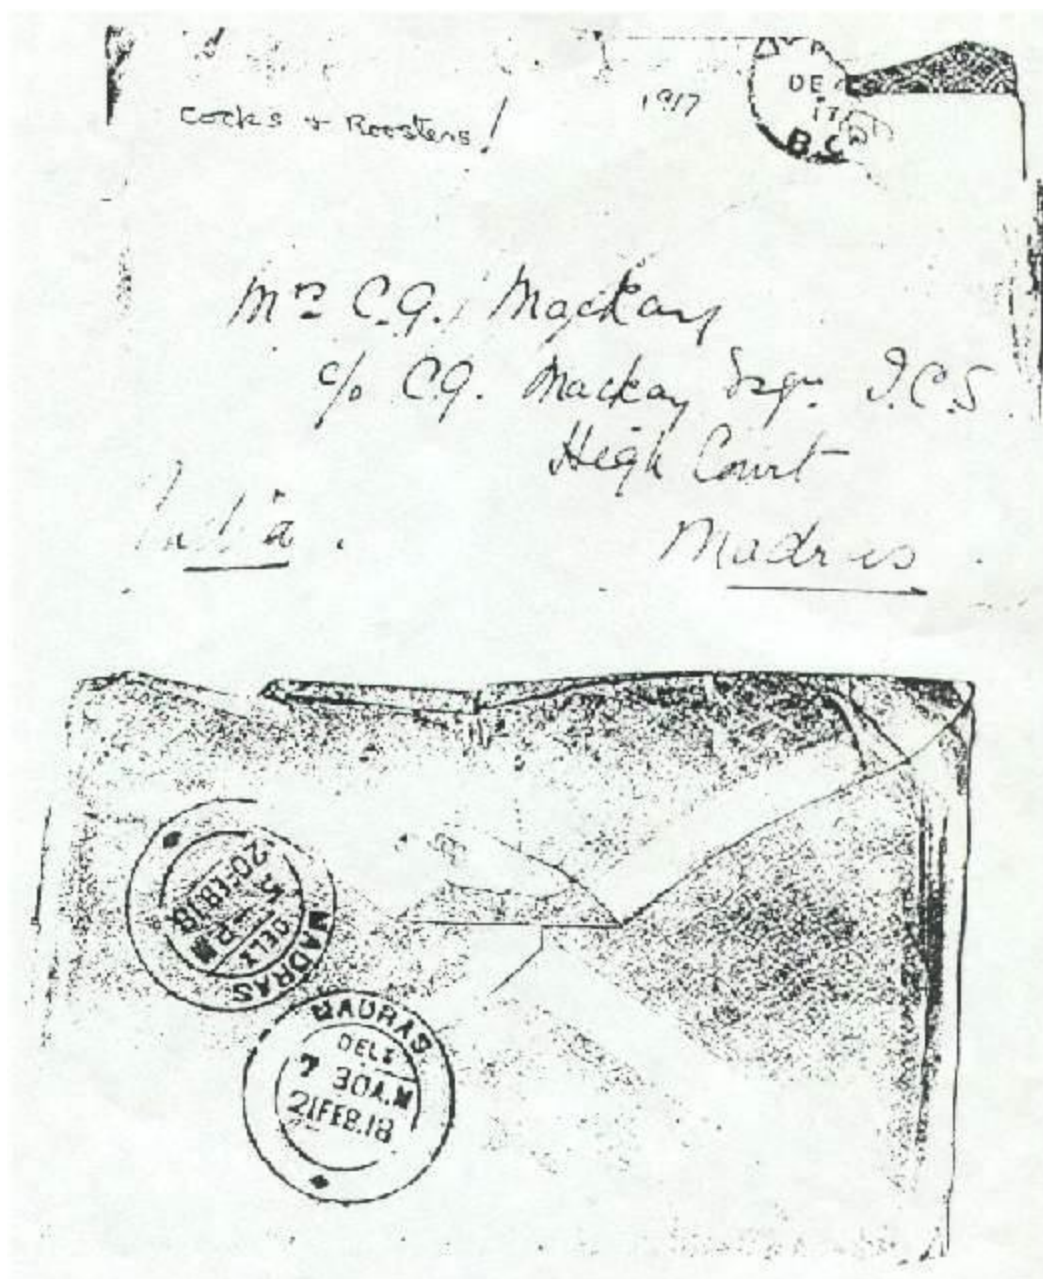 Cocks & Roosters!
1917
DE
17
B.C
Mrs C.G. Mackay
c/o C.G. Mackay Esqr. I.C.S
High Court
India.
Madras
MADRAS
DELY
5 P.M
20 FEB.18
MADRAS
DELY
7 30A.M
21FEB.18